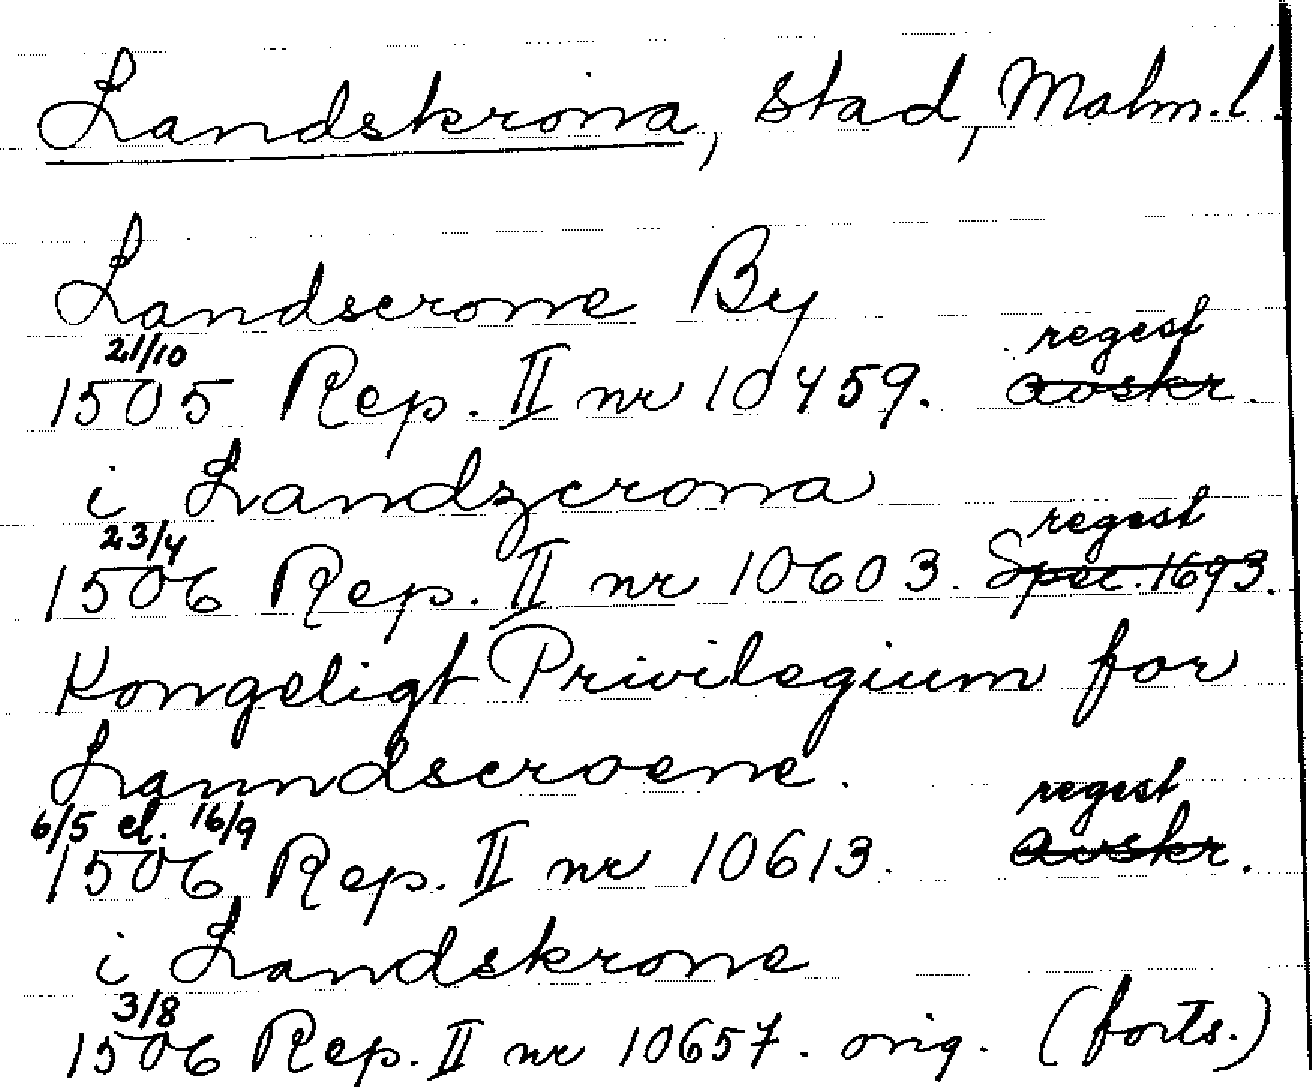 Landskrona, stad, Malm.l.
Landscrone By
21/10 regest
1505 Rep. II nr 10459. avskr.
i Landzcrona
23/4 regest
1506 Rep. II nr 10603. Spec. 1693.
Kongeligt Privilegium for
Lanndscroene.
6/5 el. 16/9 regest
1506 Rep. II nr 10613. avskr.
i Landskrone
3/8
1506 Rep. II nr 10657. orig. (forts.)